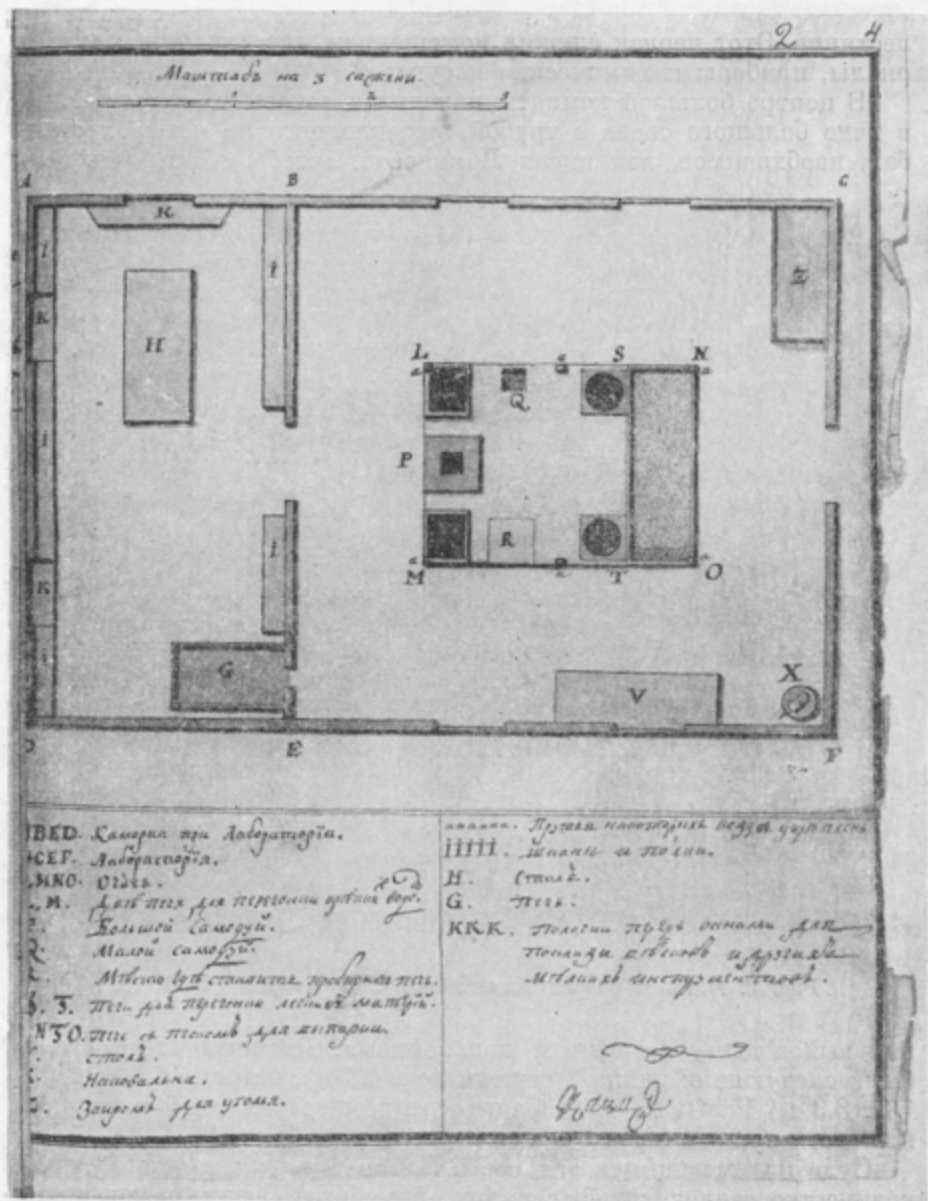 2 4
Маштабъ на 3 сажени
1 2 3
A B C
K
I I
K H Z
L a S N
a Q a
I
P
I R
a M a T O a
K
I G V X
D E F
BED. Каморка при Лабораторіи.
CEF. Лабораторїа.
MNO. Очагъ.
M. Двѣ печи для перегонки крѣпкихъ водокъ.
Большой Самодуй.
Малой самодуй.
Мѣсто гдѣ ставится пробирная печь.
S. T. печи для перегонки легкихъ матерїй.
NSTO. печь съ пескомъ для
столъ.
Наковальна.
Закромъ для уголья.
aaaaaa. Прутья на которыхъ
IIIII. шкапы и полки.
H. столъ.
G. печь.
KKK. Полочки предъ окнами для
поклажи вѣсковъ и другихъ
мѣлкихъ инструментовъ.